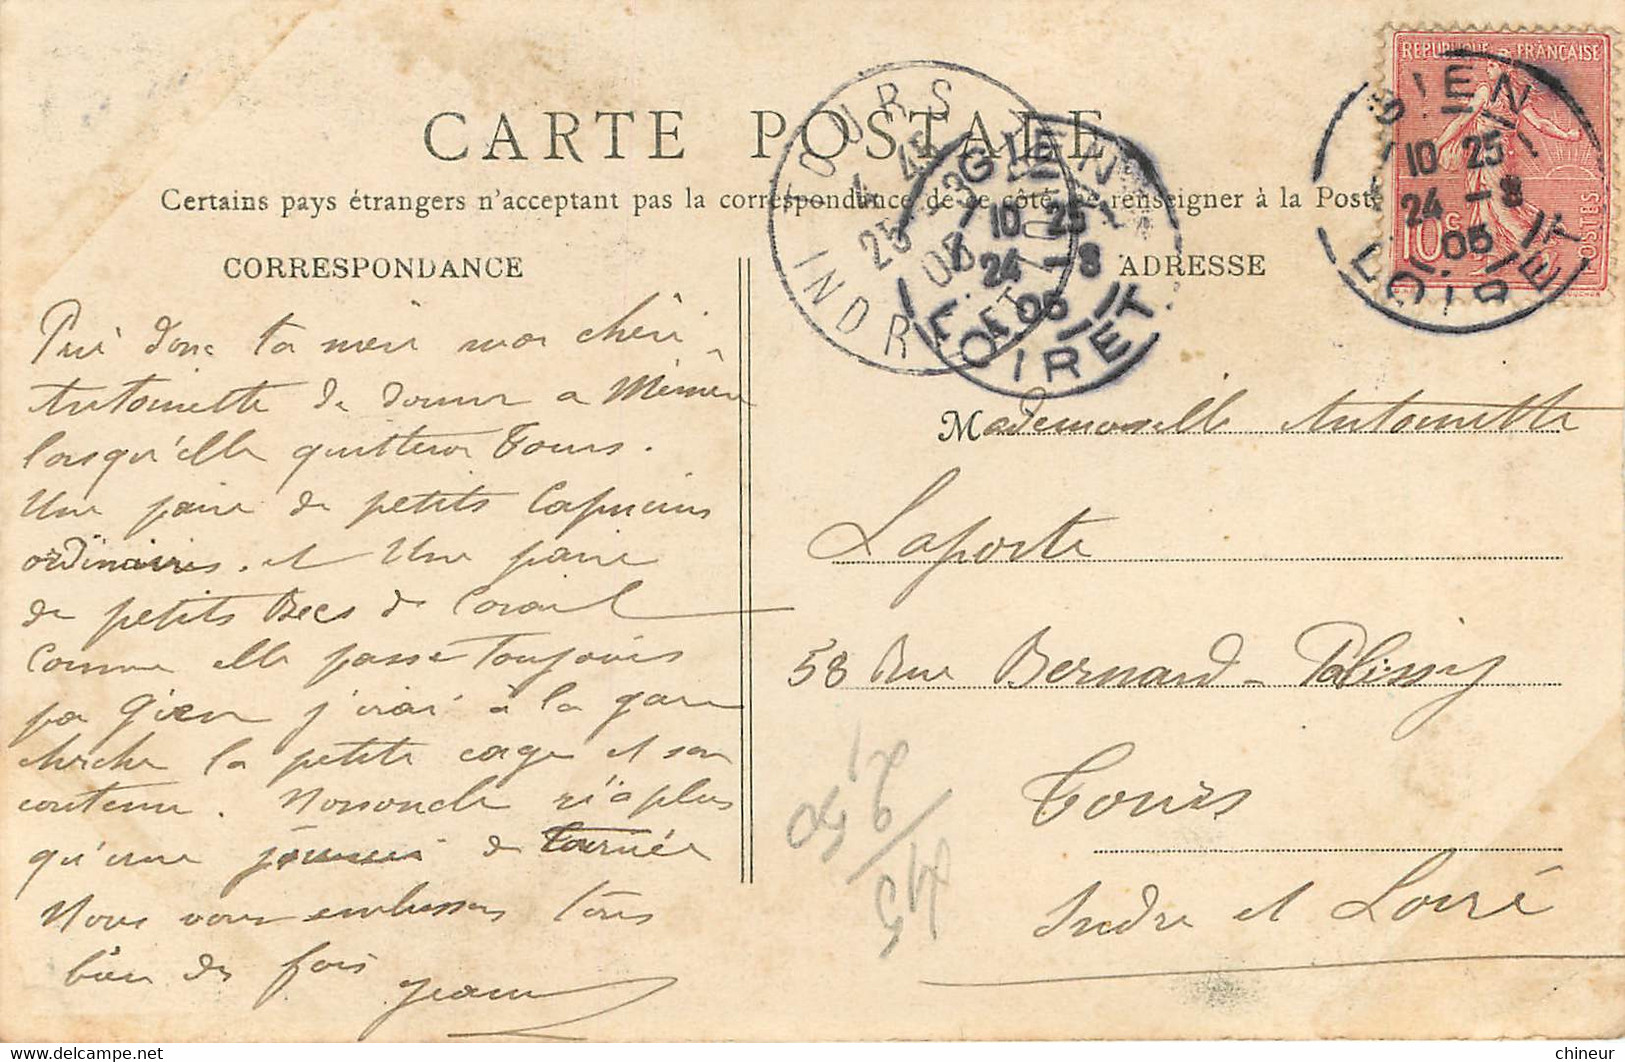 CARTE POSTALE
Certains pays étrangers n'acceptant pas la correspondance de ce côté, se renseigner à la Poste
CORRESPONDANCE
ADRESSE
REPUBLIQUE FRANÇAISE
10c
POSTES
GIEN
10 25
24 -8
05
LOIRET
TOURS
4 45
25 -8
05
INDRE ET LOIRE
GIEN
10 25
24 -8
05
LOIRET
Prié donc ta mère ma chéri
Antoinette de donner a Mémère
lorsqu'elle quittera Tours.
Une paire de petits Capucins
ordinaires. et Une paire
de petits Becs de Corail
Comme elle passe Toujours
pa Gien j'irai à la gare
cherche la petite cage et son
contenu. Mononcle n'a plus
qu'une journée de tournée
Nous vous embrassons tous
bien des fois
Jean
Mademoiselle Antoinette
Laporte
58 Rue Bernard-Palissy
Tours
Indre et Loire
chineur